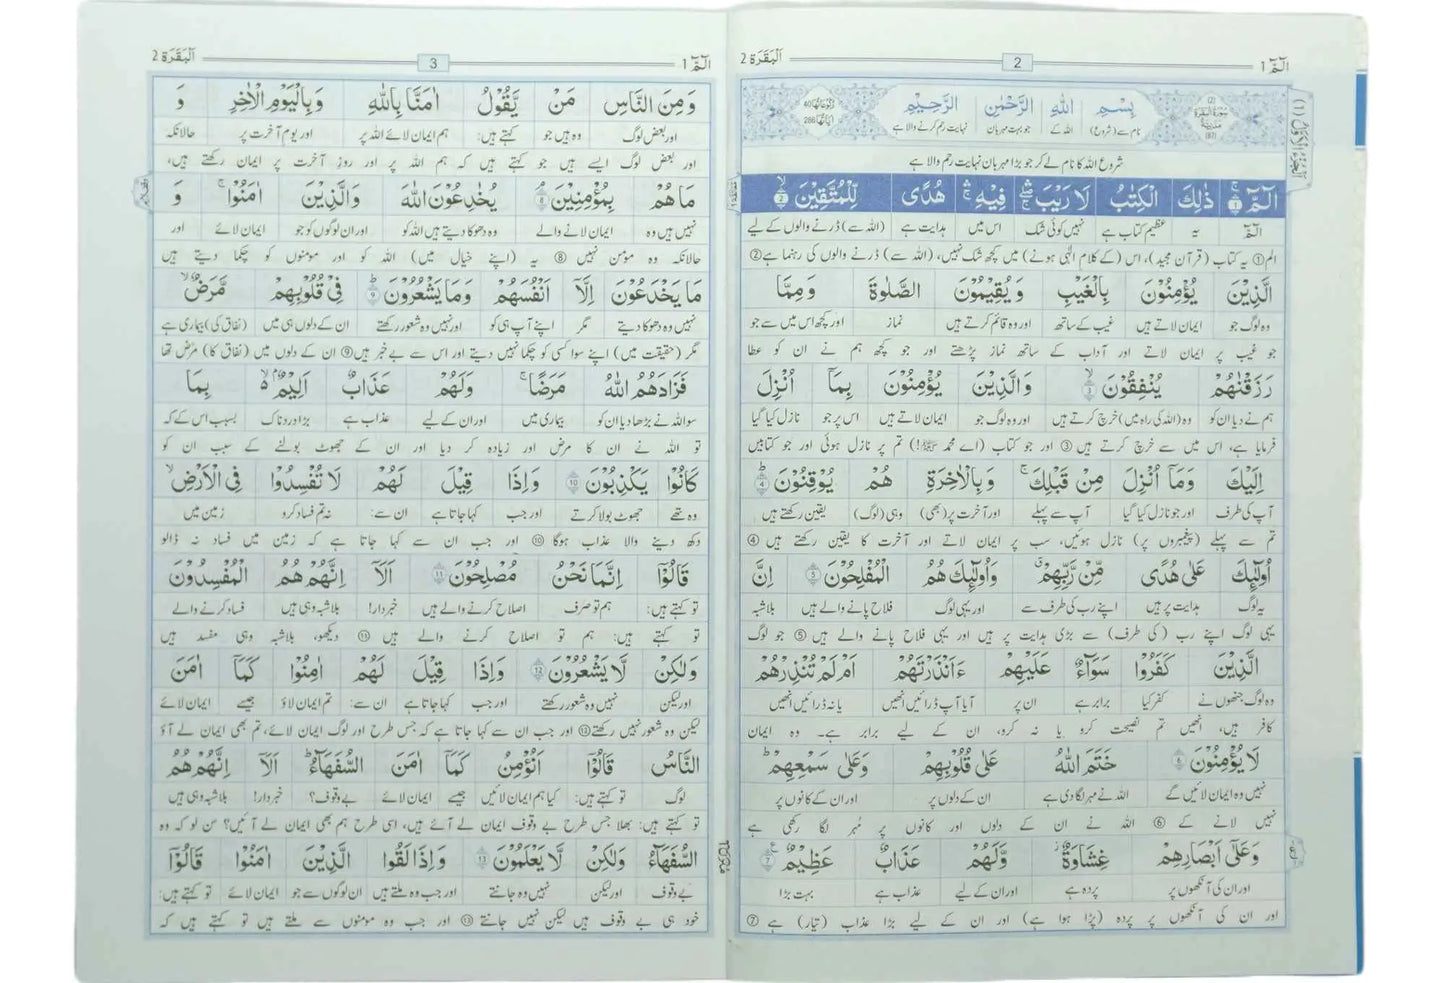 الٓمّٓ 1
2
اَلْبَقَرَة 2
بِسْمِ اللّٰهِ الرَّحْمٰنِ الرَّحِيْمِ
نام سے (شروع) اللہ کے جو بہت مہربان نہایت رحم کرنے والا ہے
شروع اللہ کا نام لے کر جو بڑا مہربان نہایت رحم والا ہے
الٓمّٓ ۚ 1 ذٰلِكَ الْكِتٰبُ لَا رَيْبَ ۛ فِيْهِ ۛ هُدًى لِّلْمُتَّقِيْنَ ۙ 2
الٓمّٓ یہ عظیم کتاب ہے نہیں کوئی شک اس میں ہدایت ہے (اللہ سے) ڈرنے والوں کے لیے
الم ① یہ کتاب (قرآن مجید)، اس (کے کلام الٰہی ہونے) میں کچھ شک نہیں، (اللہ سے) ڈرنے والوں کی رہنما ہے ②
الَّذِيْنَ يُؤْمِنُوْنَ بِالْغَيْبِ وَ يُقِيْمُوْنَ الصَّلٰوةَ وَ مِمَّا
وہ لوگ جو ایمان لاتے ہیں غیب کے ساتھ اور وہ قائم کرتے ہیں نماز اور کچھ اس میں سے جو
جو غیب پر ایمان لاتے اور آداب کے ساتھ نماز پڑھتے اور جو کچھ ہم نے ان کو عطا
رَزَقْنٰهُمْ يُنْفِقُوْنَ ۙ 3 وَ الَّذِيْنَ يُؤْمِنُوْنَ بِمَآ اُنْزِلَ
ہم نے دیا ان کو وہ (اللہ کی راہ میں) خرچ کرتے ہیں اور وہ لوگ جو ایمان لاتے ہیں اس پر جو نازل کیا گیا
فرمایا ہے، اس میں سے خرچ کرتے ہیں ③ اور جو کتاب (اے محمد ﷺ!) تم پر نازل ہوئی اور جو کتابیں
اِلَيْكَ وَمَآ اُنْزِلَ مِنْ قَبْلِكَ ۚ وَ بِالْاٰخِرَةِ هُمْ يُوْقِنُوْنَ ؕ 4
آپ کی طرف اور جو نازل کیا گیا آپ سے پہلے اور آخرت پر (بھی) وہی (لوگ) یقین رکھتے ہیں
تم سے پہلے (پیغمبروں پر) نازل ہوئیں، سب پر ایمان لاتے اور آخرت کا یقین رکھتے ہیں ④
اُولٰٓئِكَ عَلٰى هُدًى مِّنْ رَّبِّهِمْ ۗ وَاُولٰٓئِكَ هُمُ الْمُفْلِحُوْنَ 5 اِنَّ
یہ لوگ ہدایت پر ہیں اپنے رب کی طرف سے اور یہی لوگ فلاح پانے والے ہیں بلاشبہ
یہی لوگ اپنے رب (کی طرف) سے بڑی ہدایت پر ہیں اور یہی فلاح پانے والے ہیں ⑤ جو لوگ
الَّذِيْنَ كَفَرُوْا سَوَآءٌ عَلَيْهِمْ ءَاَنْذَرْتَهُمْ اَمْ لَمْ تُنْذِرْهُمْ
وہ لوگ جنھوں نے کفر کیا برابر ہے ان پر آیا آپ ڈرائیں انھیں یا نہ ڈرائیں انھیں
کافر ہیں، انھیں تم نصیحت کرو یا نہ کرو، ان کے لیے برابر ہے۔ وہ ایمان
لَا يُؤْمِنُوْنَ 6 خَتَمَ اللّٰهُ عَلٰى قُلُوْبِهِمْ وَعَلٰى سَمْعِهِمْ ؕ
نہیں وہ ایمان لائیں گے اللہ نے مہر لگا دی ہے ان کے دلوں پر اور ان کے کانوں پر
نہیں لانے کے ⑥ اللہ نے ان کے دلوں اور کانوں پر مُہر لگا رکھی ہے
وَعَلٰٓى اَبْصَارِهِمْ غِشَاوَةٌ ؗ وَّلَهُمْ عَذَابٌ عَظِيْمٌ 7
اور ان کی آنکھوں پر پردہ ہے اور ان کے لیے عذاب ہے بہت بڑا
اور ان کی آنکھوں پر پردہ (پڑا ہوا ہے) اور ان کے لیے بڑا عذاب (تیار) ہے ⑦
الٓمّٓ 1
3
اَلْبَقَرَة 2
وَ مِنَ النَّاسِ مَنْ يَّقُوْلُ اٰمَنَّا بِاللّٰهِ وَ بِالْيَوْمِ الْاٰخِرِ وَ
اور بعض لوگ وہ ہیں جو کہتے ہیں: ہم ایمان لائے اللہ پر اور یوم آخرت پر حالانکہ
اور بعض لوگ ایسے ہیں جو کہتے ہیں کہ ہم اللہ پر اور روزِ آخرت پر ایمان رکھتے ہیں،
مَا هُمْ بِمُؤْمِنِيْنَ ۘ 8 يُخٰدِعُوْنَ اللّٰهَ وَالَّذِيْنَ اٰمَنُوْا ۚ وَ
نہیں ہیں وہ ایمان لانے والے وہ دھوکا دیتے ہیں اللہ کو اور ان لوگوں کو جو ایمان لائے اور
حالانکہ وہ مؤمن نہیں ⑧ یہ (اپنے خیال میں) اللہ کو اور مومنوں کو چکما دیتے ہیں
مَا يَخْدَعُوْنَ اِلَّآ اَنْفُسَهُمْ وَمَا يَشْعُرُوْنَ ؕ 9 فِيْ قُلُوْبِهِمْ مَّرَضٌ ۙ
نہیں وہ دھوکا دیتے مگر اپنے آپ ہی کو اور نہیں وہ شعور رکھتے ان کے دلوں ہی میں (نفاق کی) بیماری ہے
مگر (حقیقت میں) اپنے سوا کسی کو چکما نہیں دیتے اور اس سے بے خبر ہیں ⑨ ان کے دلوں میں (نفاق کا) مرض تھا
فَزَادَهُمُ اللّٰهُ مَرَضًا ۚ وَلَهُمْ عَذَابٌ اَلِيْمٌۢ ۙ بِمَا
سو اللہ نے بڑھا دیا ان کو بیماری میں اور ان کے لیے عذاب ہے بڑا دردناک بسبب اس کے کہ
تو اللہ نے ان کا مرض اور زیادہ کر دیا اور ان کے جھوٹ بولنے کے سبب ان کو
كَانُوْا يَكْذِبُوْنَ 10 وَ اِذَا قِيْلَ لَهُمْ لَا تُفْسِدُوْا فِي الْاَرْضِ ۙ
وہ تھے جھوٹ بولا کرتے اور جب کہا جاتا ہے ان سے: نہ تم فساد کرو زمین میں
دکھ دینے والا عذاب ہوگا ⑩ اور جب ان سے کہا جاتا ہے کہ زمین میں فساد نہ ڈالو
قَالُوْٓا اِنَّمَا نَحْنُ مُصْلِحُوْنَ 11 اَلَآ اِنَّهُمْ هُمُ الْمُفْسِدُوْنَ
تو کہتے ہیں: ہم تو صرف اصلاح کرنے والے ہیں خبردار! بلاشبہ وہی ہیں فساد کرنے والے
تو کہتے ہیں: ہم تو اصلاح کرنے والے ہیں ⑪ دیکھو، بلاشبہ وہی مفسد ہیں
وَلٰكِنْ لَّا يَشْعُرُوْنَ 12 وَ اِذَا قِيْلَ لَهُمْ اٰمِنُوْا كَمَآ اٰمَنَ
اور لیکن نہیں وہ شعور رکھتے اور جب کہا جاتا ہے ان سے: تم ایمان لاؤ جیسے ایمان لائے
لیکن وہ شعور نہیں رکھتے ⑫ اور جب ان سے کہا جاتا ہے کہ جس طرح اور لوگ ایمان لائے، تم بھی ایمان لے آؤ
النَّاسُ قَالُوْٓا اَنُؤْمِنُ كَمَآ اٰمَنَ السُّفَهَآءُ ؕ اَلَآ اِنَّهُمْ هُمُ
لوگ تو کہتے ہیں: کیا ہم ایمان لائیں جیسے ایمان لائے بے وقوف؟ خبردار! بلاشبہ وہی ہیں
تو کہتے ہیں: بھلا جس طرح بے وقوف ایمان لے آئے ہیں، اسی طرح ہم بھی ایمان لے آئیں؟ سن لو کہ وہ
السُّفَهَآءُ وَلٰكِنْ لَّا يَعْلَمُوْنَ 13 وَ اِذَا لَقُوا الَّذِيْنَ اٰمَنُوْا قَالُوْٓا
بے وقوف اور لیکن نہیں وہ جانتے اور جب وہ ملتے ہیں ان لوگوں سے جو ایمان لائے تو کہتے ہیں:
خود ہی بے وقوف ہیں لیکن نہیں جانتے ⑬ اور جب وہ مومنوں سے ملتے ہیں تو کہتے ہیں کہ